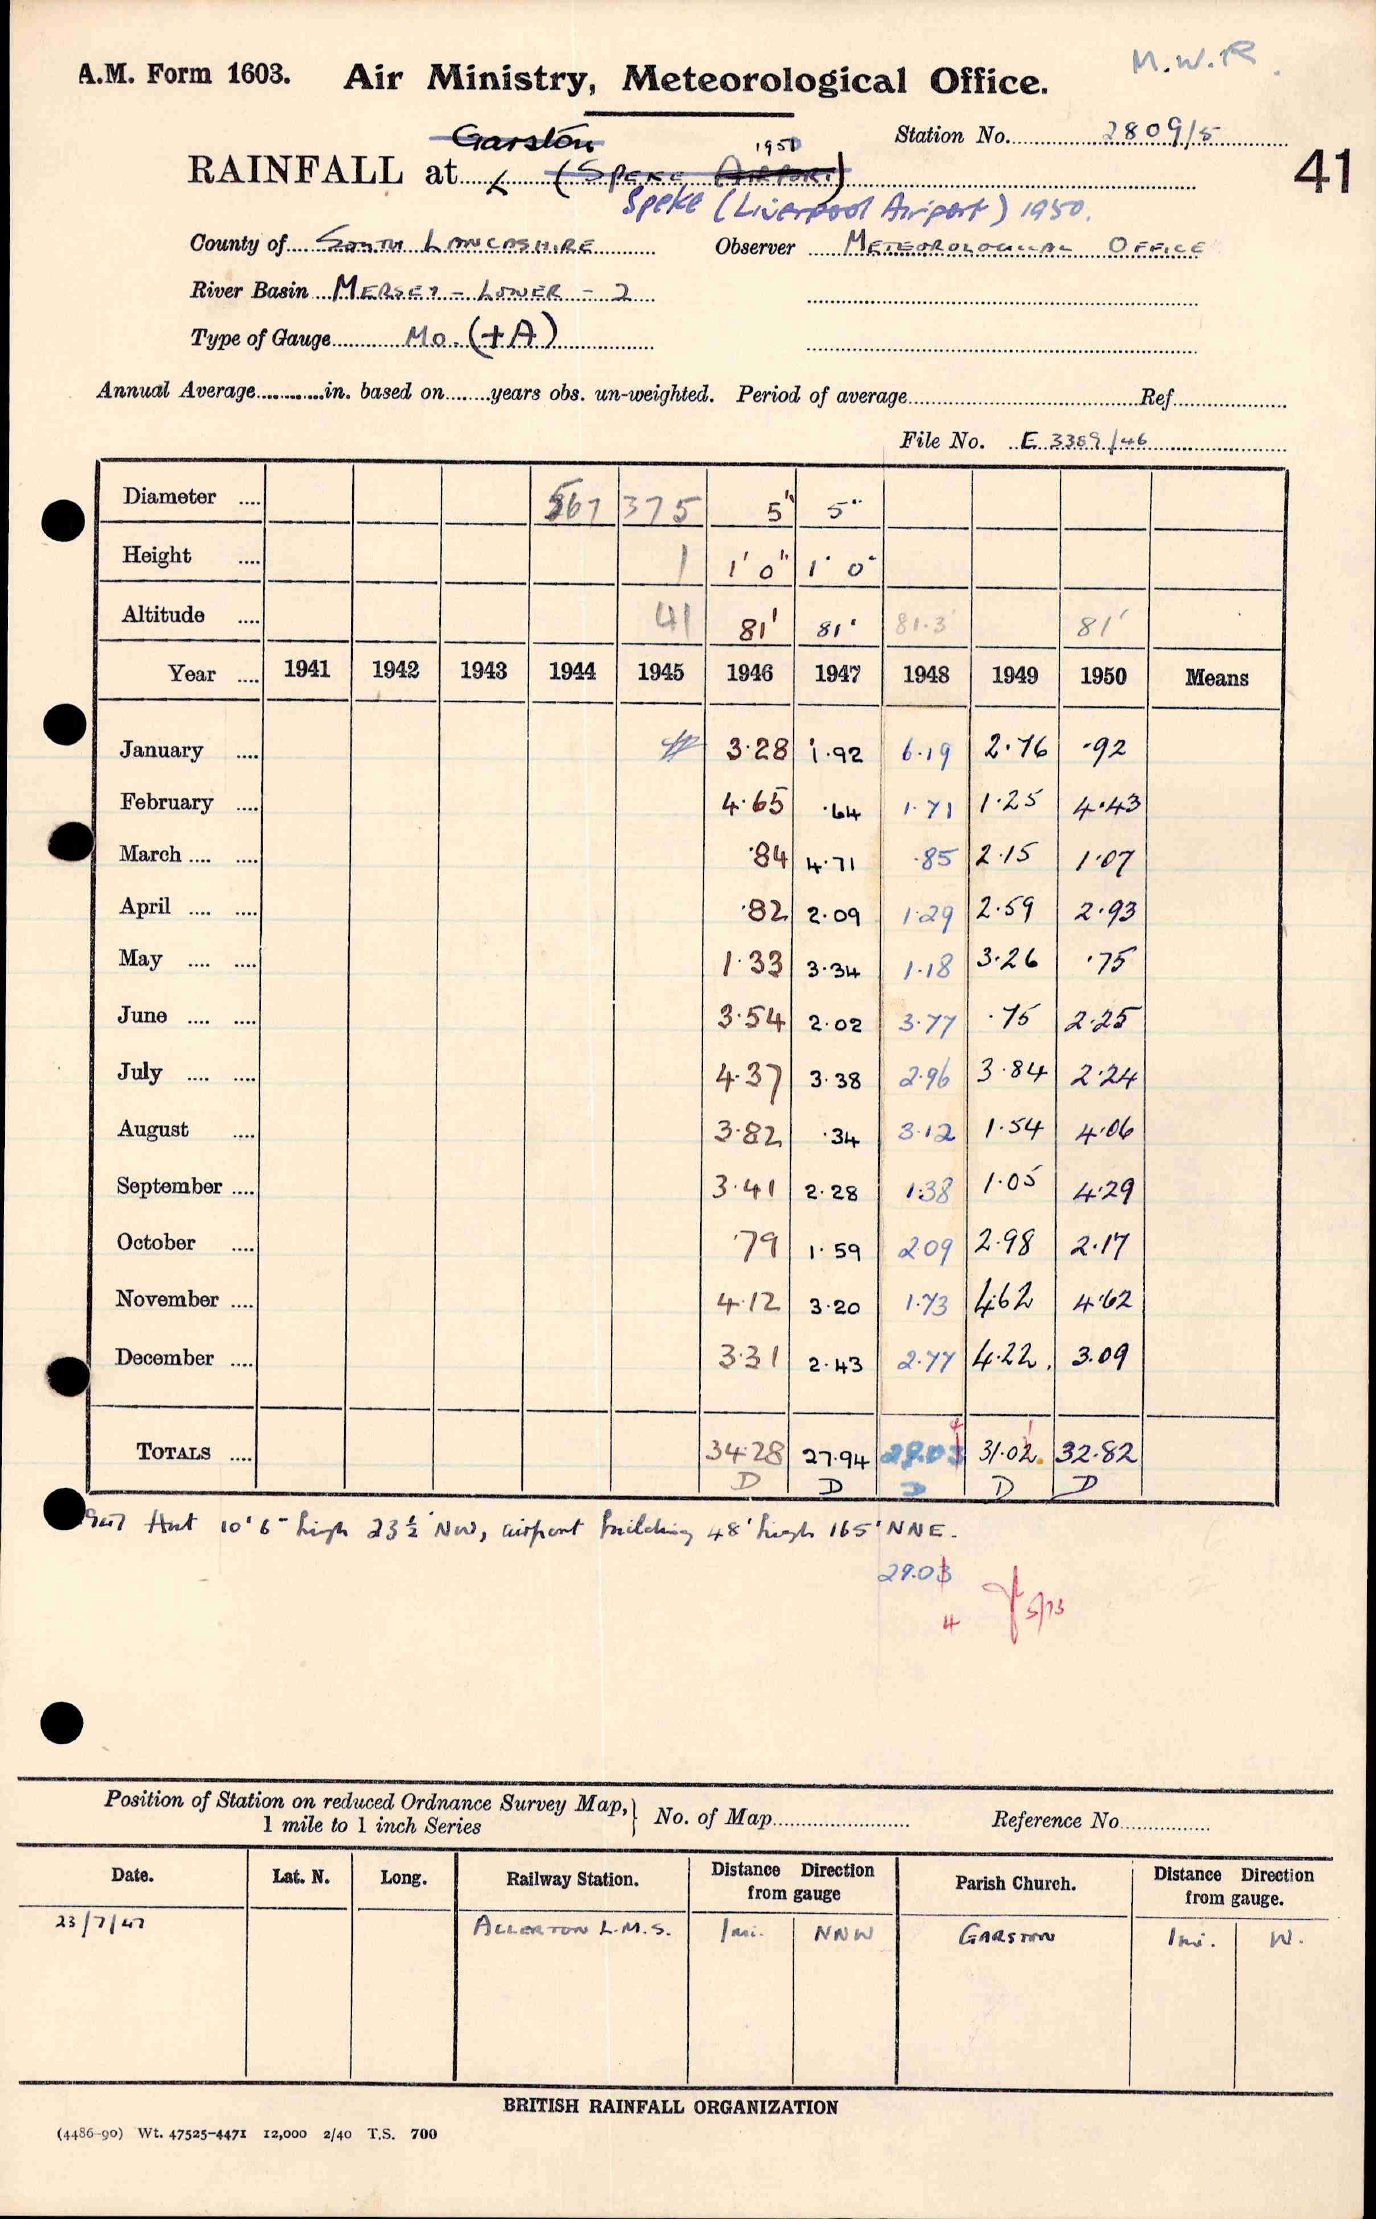 M.W.R.
A.M. Form 1603. Air Ministry, Meteorological Office.
Station No. 2809/5
41
Garston
1950
RAINFALL at (SPEKE AIRPORT)
Speke (Liverpool Airport) 1950.
County of SOUTH LANCASHIRE Observer METEOROLOGICAL OFFICE
River Basin MERSEY - LOWER - 2
Type of Gauge MO. (+A)
Annual Average in. based on years obs. un-weighted. Period of average Ref
File No. E 3389/46
Diameter 567 375 5" 5"
Height 1 1' 0" 1' 0"
Altitude 41 81' 81' 81.3 81'
Year 1941 1942 1943 1944 1945 1946 1947 1948 1949 1950 Means
January 3.28 1.92 6.19 2.76 .92
February 4.65 .64 1.71 1.25 4.43
March .84 4.71 .85 2.15 1.07
April .82 2.09 1.29 2.59 2.93
May 1.33 3.34 1.18 3.26 .75
June 3.54 2.02 3.77 .75 2.25
July 4.37 3.38 2.96 3.84 2.24
August 3.82 .34 3.12 1.54 4.06
September 3.41 2.28 1.38 1.05 4.29
October .79 1.59 2.09 2.98 2.17
November 4.12 3.20 1.73 4.62 4.62
December 3.31 2.43 2.77 4.22 3.09
4 1
TOTALS 34.28 27.94 29.03 31.02 32.82
D D D D D
1947 Hut 10'6" high 23½' NW, airport building 48' high 165' NNE.
29.03
4 5/73
Position of Station on reduced Ordnance Survey Map, 1 mile to 1 inch Series } No. of Map Reference No
Date. Lat. N. Long. Railway Station. Distance Direction from gauge Parish Church. Distance Direction from gauge.
23/7/47 ALLERTON L.M.S. 1 mi. NNW GARSTON 1 mi. W.
BRITISH RAINFALL ORGANIZATION
(4486-90) Wt. 47525-4471 12,000 2/40 T.S. 700